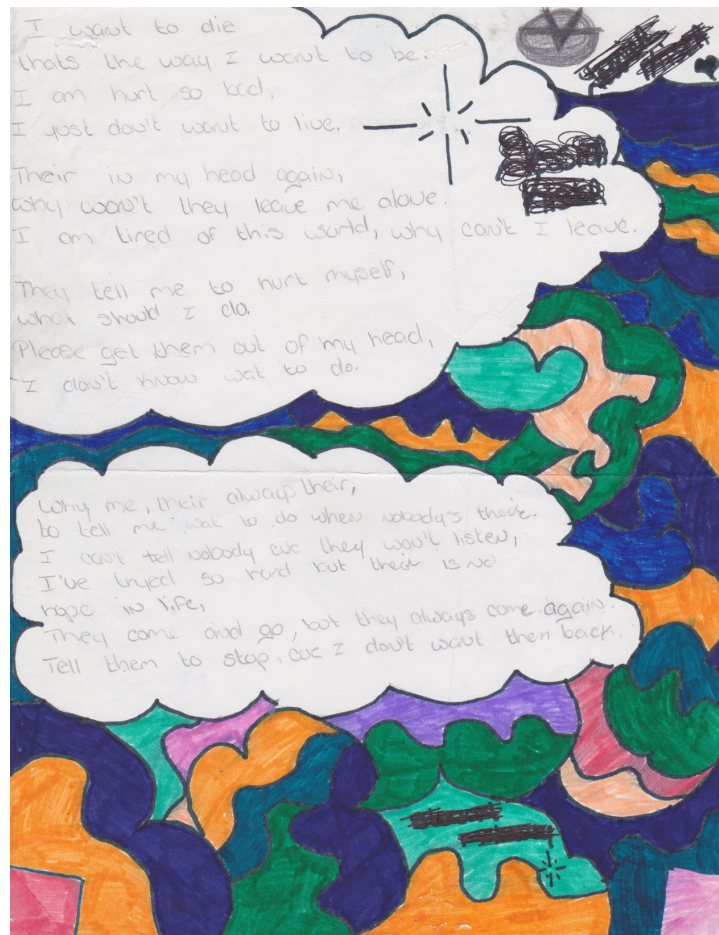 I want to die
thats the way I want to be.
I am hurt so bad,
I just don't want to live.
Their in my head again,
why won't they leave me alone.
I am tired of this world, why can't I leave.
They tell me to hurt myself,
what should I do.
Please get them out of my head,
I don't know wat to do.
Why me, their always their,
to tell me wat to do when nobody's there.
I can't tell nobody cuz they won't listen,
I've tryed so hard but their is no
hope in life,
They come and go, but they always come again.
Tell them to stop, cuz I don't want them back.